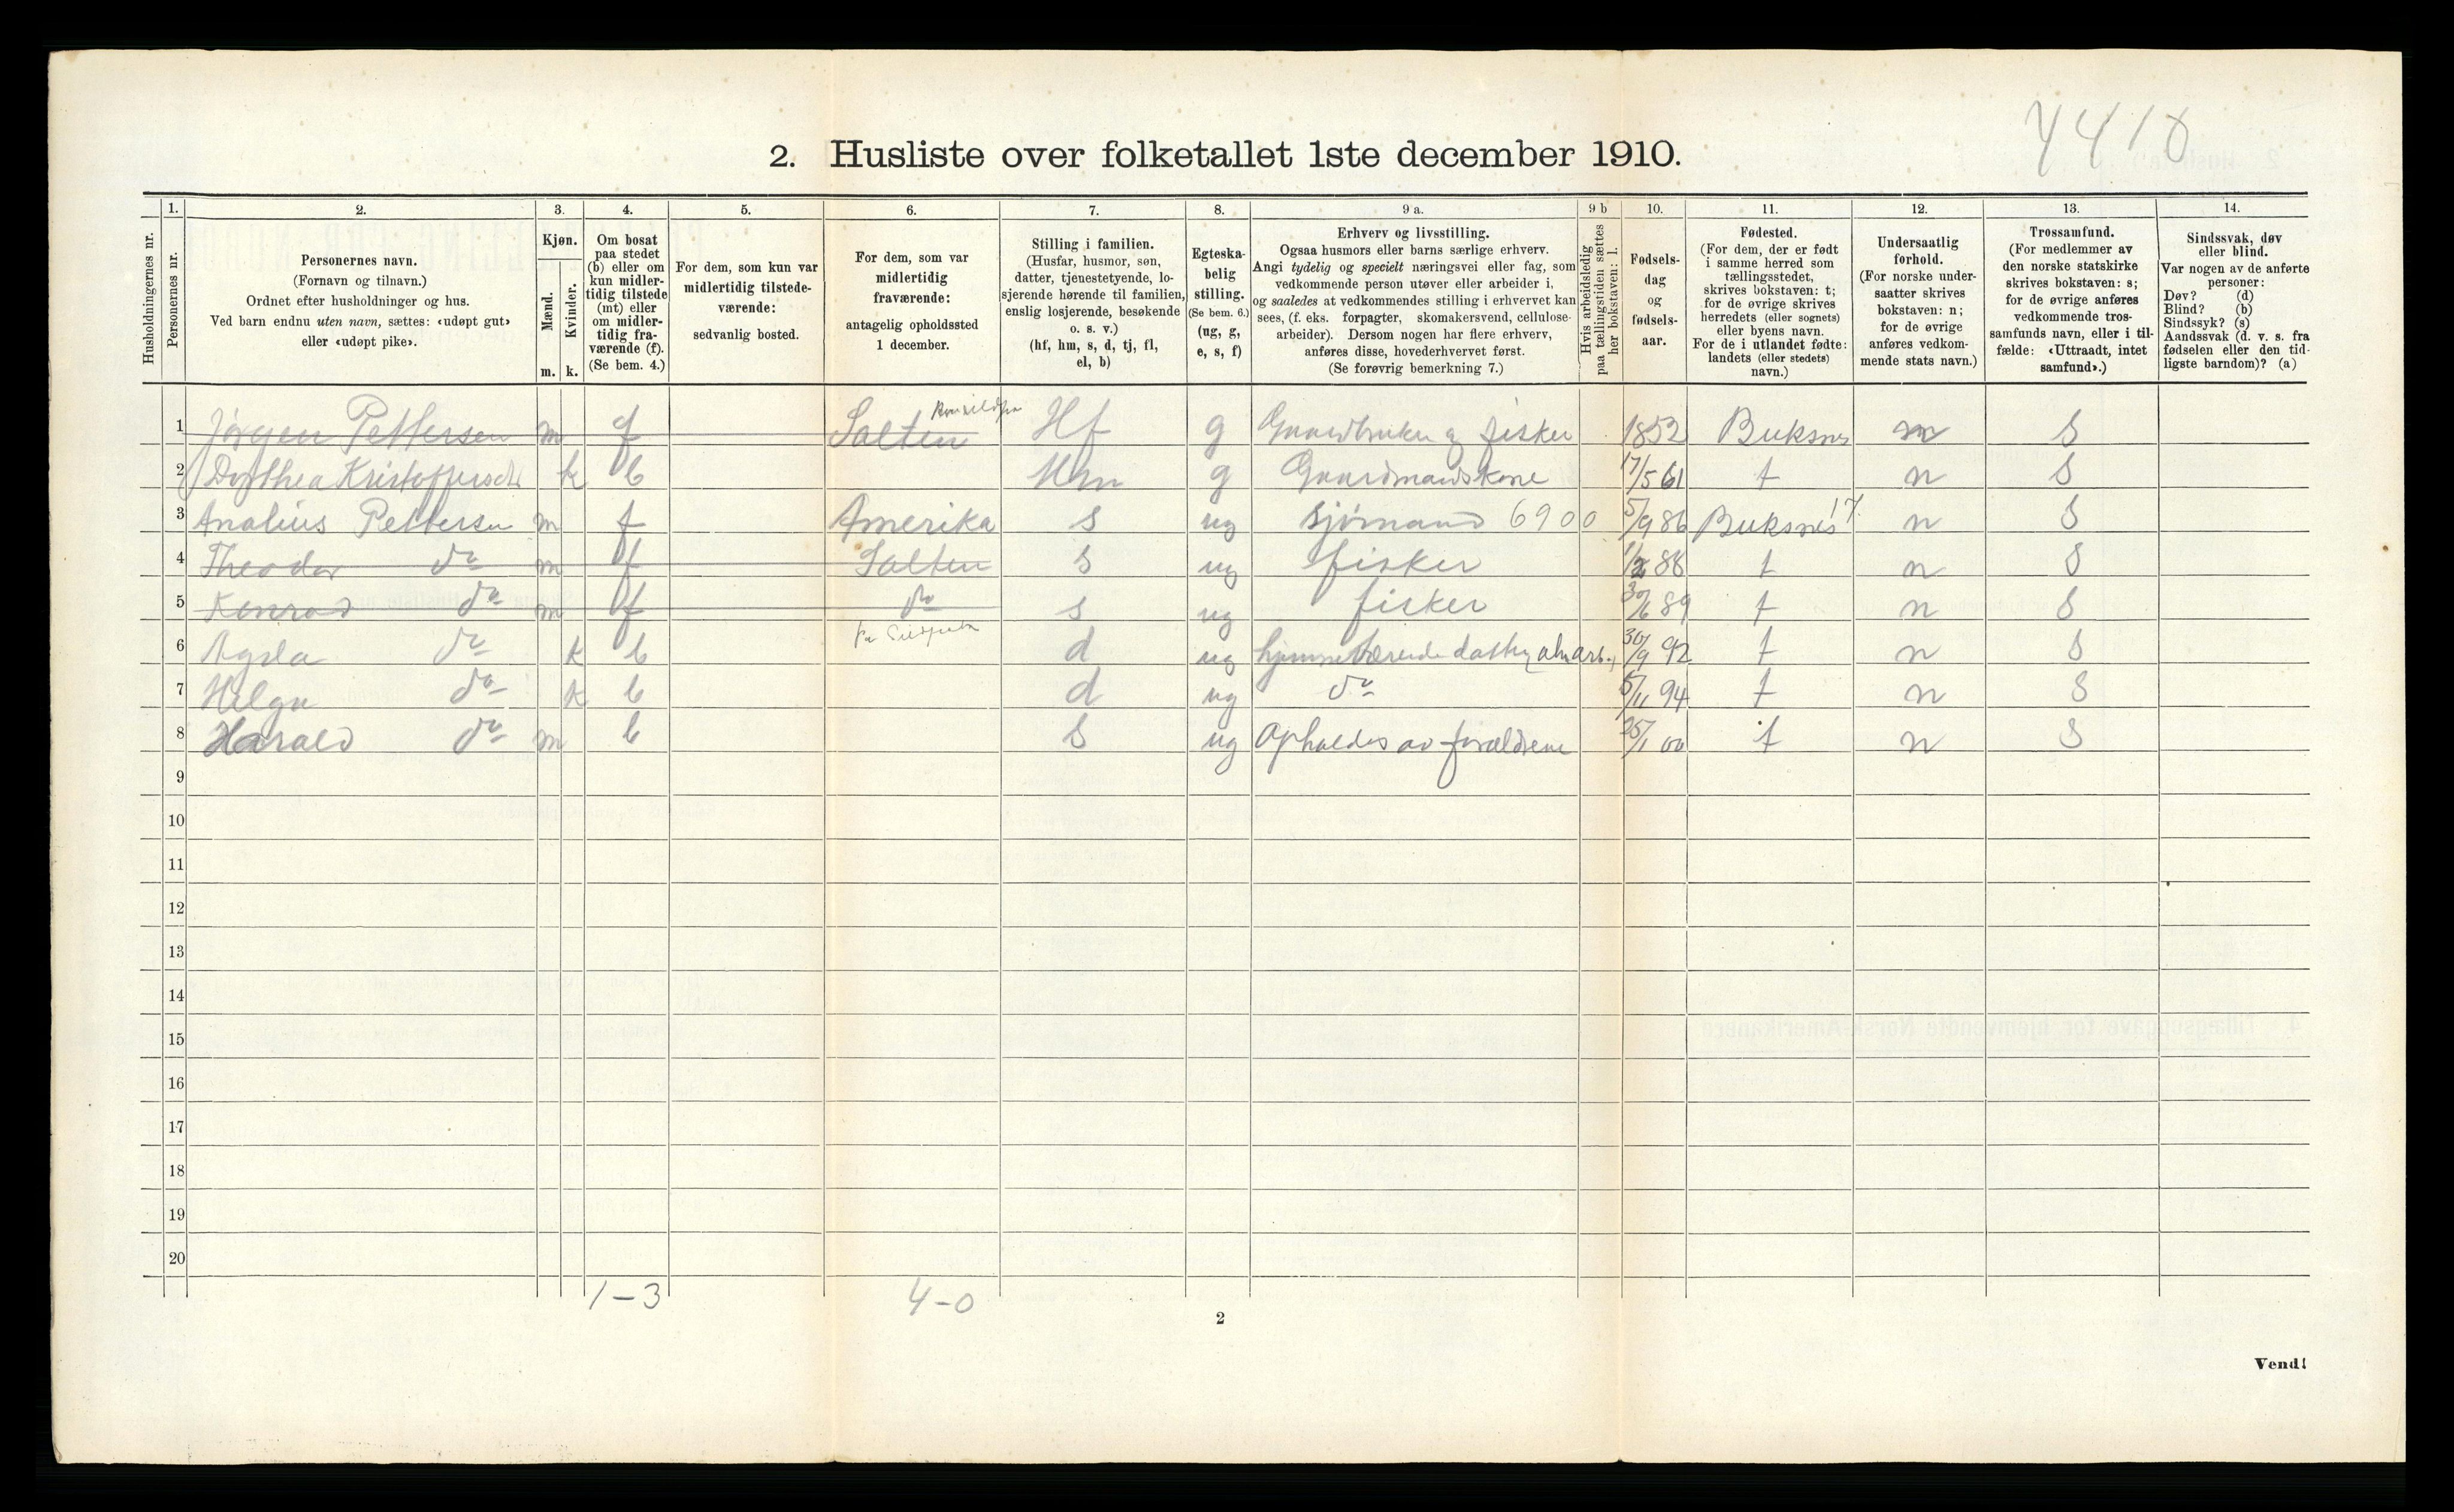 4410
2. Husliste over folketallet 1ste december 1910.
Husholdningernes nr.
1. Personernes nr.
2. Personernes navn.
(Fornavn og tilnavn.)
Ordnet efter husholdninger og hus.
Ved barn endnu uten navn, sættes: «udøpt gut»
eller «udøpt pike».
3. Kjøn.
Mænd. Kvinder.
m. k.
4. Om bosat
paa stedet
(b) eller om
kun midler-
tidig tilstede
(mt) eller
om midler-
tidig fra-
værende (f).
(Se bem. 4.)
5. For dem, som kun var
midlertidig tilstede-
værende:
sedvanlig bosted.
6. For dem, som var
midlertidig
fraværende:
antagelig opholdssted
1 december.
7. Stilling i familien.
(Husfar, husmor, søn,
datter, tjenestetyende, lo-
sjerende hørende til familien,
enslig losjerende, besøkende
o. s. v.)
(hf, hm, s, d, tj, fl,
el, b)
8. Egteska-
belig
stilling.
(Se bem. 6.)
(ug, g,
e, s, f)
9 a. Erhverv og livsstilling.
Ogsaa husmors eller barns særlige erhverv.
Angi tydelig og specielt næringsvei eller fag, som
vedkommende person utøver eller arbeider i,
og saaledes at vedkommendes stilling i erhvervet kan
sees, (f. eks. forpagter, skomakersvend, cellulose-
arbeider). Dersom nogen har flere erhverv,
anføres disse, hovederhvervet først.
(Se forøvrig bemerkning 7.)
9 b Hvis arbeidsledig
paa tællingstiden sættes
her bokstaven: l.
10. Fødsels-
dag
og
fødsels-
aar.
11. Fødested.
(For dem, der er født
i samme herred som
tællingsstedet,
skrives bokstaven: t;
for de øvrige skrives
herredets (eller sognets)
eller byens navn.
For de i utlandet fødte:
landets (eller stedets)
navn.)
12. Undersaatlig
forhold.
(For norske under-
saatter skrives
bokstaven: n;
for de øvrige
anføres vedkom-
mende stats navn.)
13. Trossamfund.
(For medlemmer av
den norske statskirke
skrives bokstaven: s;
for de øvrige anføres
vedkommende tros-
samfunds navn, eller i til-
fælde: «Uttraadt, intet
samfund».)
14. Sindssvak, døv
eller blind.
Var nogen av de anførte
personer:
Døv? (d)
Blind? (b)
Sindssyk? (s)
Aandssvak (d. v. s. fra
fødselen eller den tid-
ligste barndom)? (a)
1 Jørgen Pettersen m f Salten Hf g Gaardbruker og fisker 1852 Buksnes n S
2 Dorthea Kristoffersdt k b Hm g Gaardmandskone 17/5 61 t n S
3 Analius Pettersen m f Amerika s ug Sjømand 6900 5/9 86 Buksnes 17 n S
4 Theodor do m f Salten s ug fisker 1/2 88 t n S
5 Konrad do m f do s ug fisker 30/6 89 t n S
6 Agda do k b d ug hjemmeværende datter alm arb. 30/9 92 t n S
7 Helga do k b d ug do 5/11 94 t n S
8 Harald do m b s ug Opholdes av forældrene 25/1 00 t n S
9
10
11
12
13
14
15
16
17
18
19
20
1-3 4-0
2
Vend!